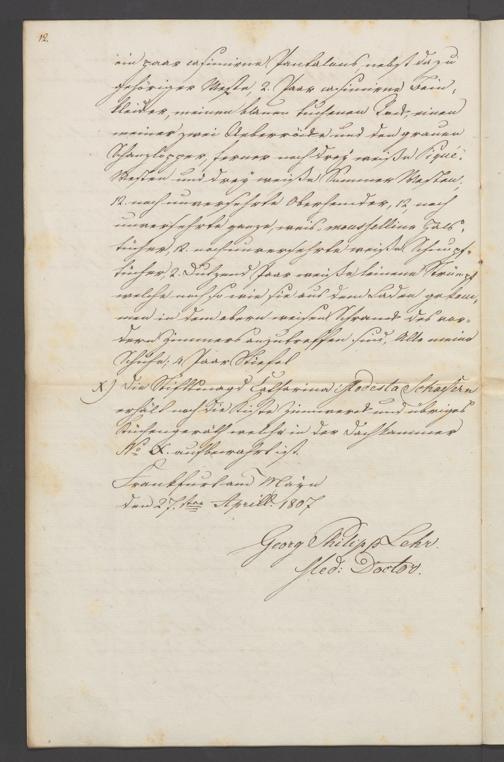 12.
ein paar casimirne Pantalons nebst dazu
gehöriger Weste, 2. Paar casimirne Bein,
kleider, meinen blauen tuchenen Rock, einen
meiner zwei Ueberröcke und den grauen
Schanzlopper, ferner noch drey weiße Piqué-
Westen und drey weiße Sommer Westen,
12. noch unversehrte Oberhemder, 12. noch
unversehrte ganz weis. mousselline Hals-
tücher, 12. noch unversehrte weiße Schnupf-
tücher, 2. Dutzend Paar weiße leinene Strümpf
welche noch so wie sie aus dem Laden gekom,
men in dem obern weißen Schrank des vor-
dern Zimmers anzutreffen sind, Alle meine
Schuhe, 4 Paar Stiefel
X) die Catharina Modesta Schäfern
erhält noch die Kiste Zinnwerk und übriges
Küchengeräth welche in der Dachkammer
No X. aufbewahrt ist.
Frankfurt am Mayn
den 27.ten Aprill. 1807
Georg Philipp Lehr.
Med: Doctor.